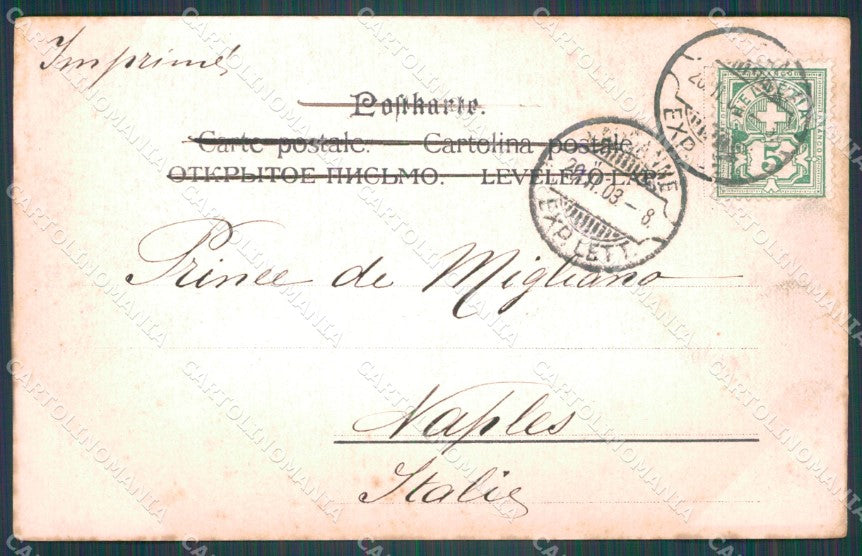 Imprimé
Postkarte.
Carte postale. Cartolina postale.
ОТКРЫТОЕ ПИСЬМО. LEVELEZŐ-LAP.
29. II. 03 – 8.
EXP. LETT.
EXP.
5
Prince de Migliano
Naples
Italie
CARTOLINOMANIA